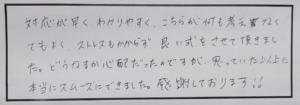 対応が早く、わかりやすく、こちらが何も考え事なく
てもよく、ストレスもかからず 良い式をさせて頂きまし
た。どうなるか心配だったのですが、思っていた以上に
本当にスムーズにできました。感謝しております!!